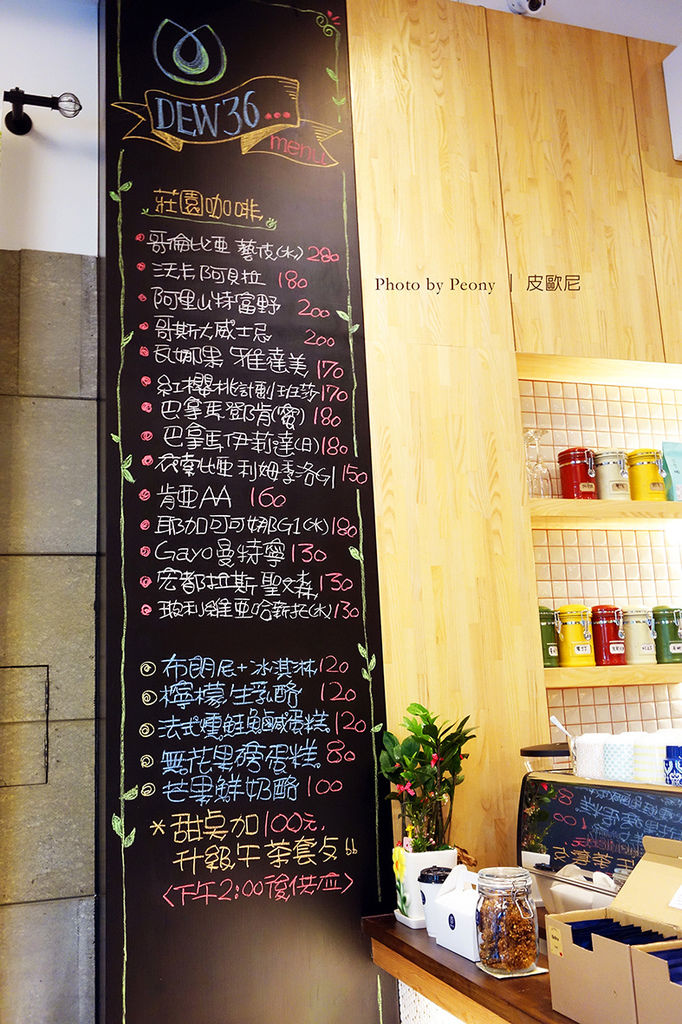 DEW 36...
menu
莊園咖啡
哥倫比亞 藝伎(水) 280
沃卡 阿貝拉 180
阿里山特富野 200
哥斯大威士忌 200
瓦娜果 雅達美 170
紅櫻桃計劃 班莎 170
巴拿馬 鄧肯(蜜) 180
巴拿馬 伊莉達(日) 180
衣索比亞 利姆季洛G1 150
肯亞AA 160
耶加可可娜G1(水) 180
Gayo曼特寧 130
宏都拉斯 聖文森 130
玻利維亞 哈新托(水) 130
布朗尼+冰淇淋 120
檸檬生乳酪 120
法式燻鮭魚鹹蛋糕 120
無花果磅蛋糕 80
芒果鮮奶酪 100
*甜點加100元,
升級午茶套点
<下午2:00後供应>
Photo by Peony | 皮歐尼